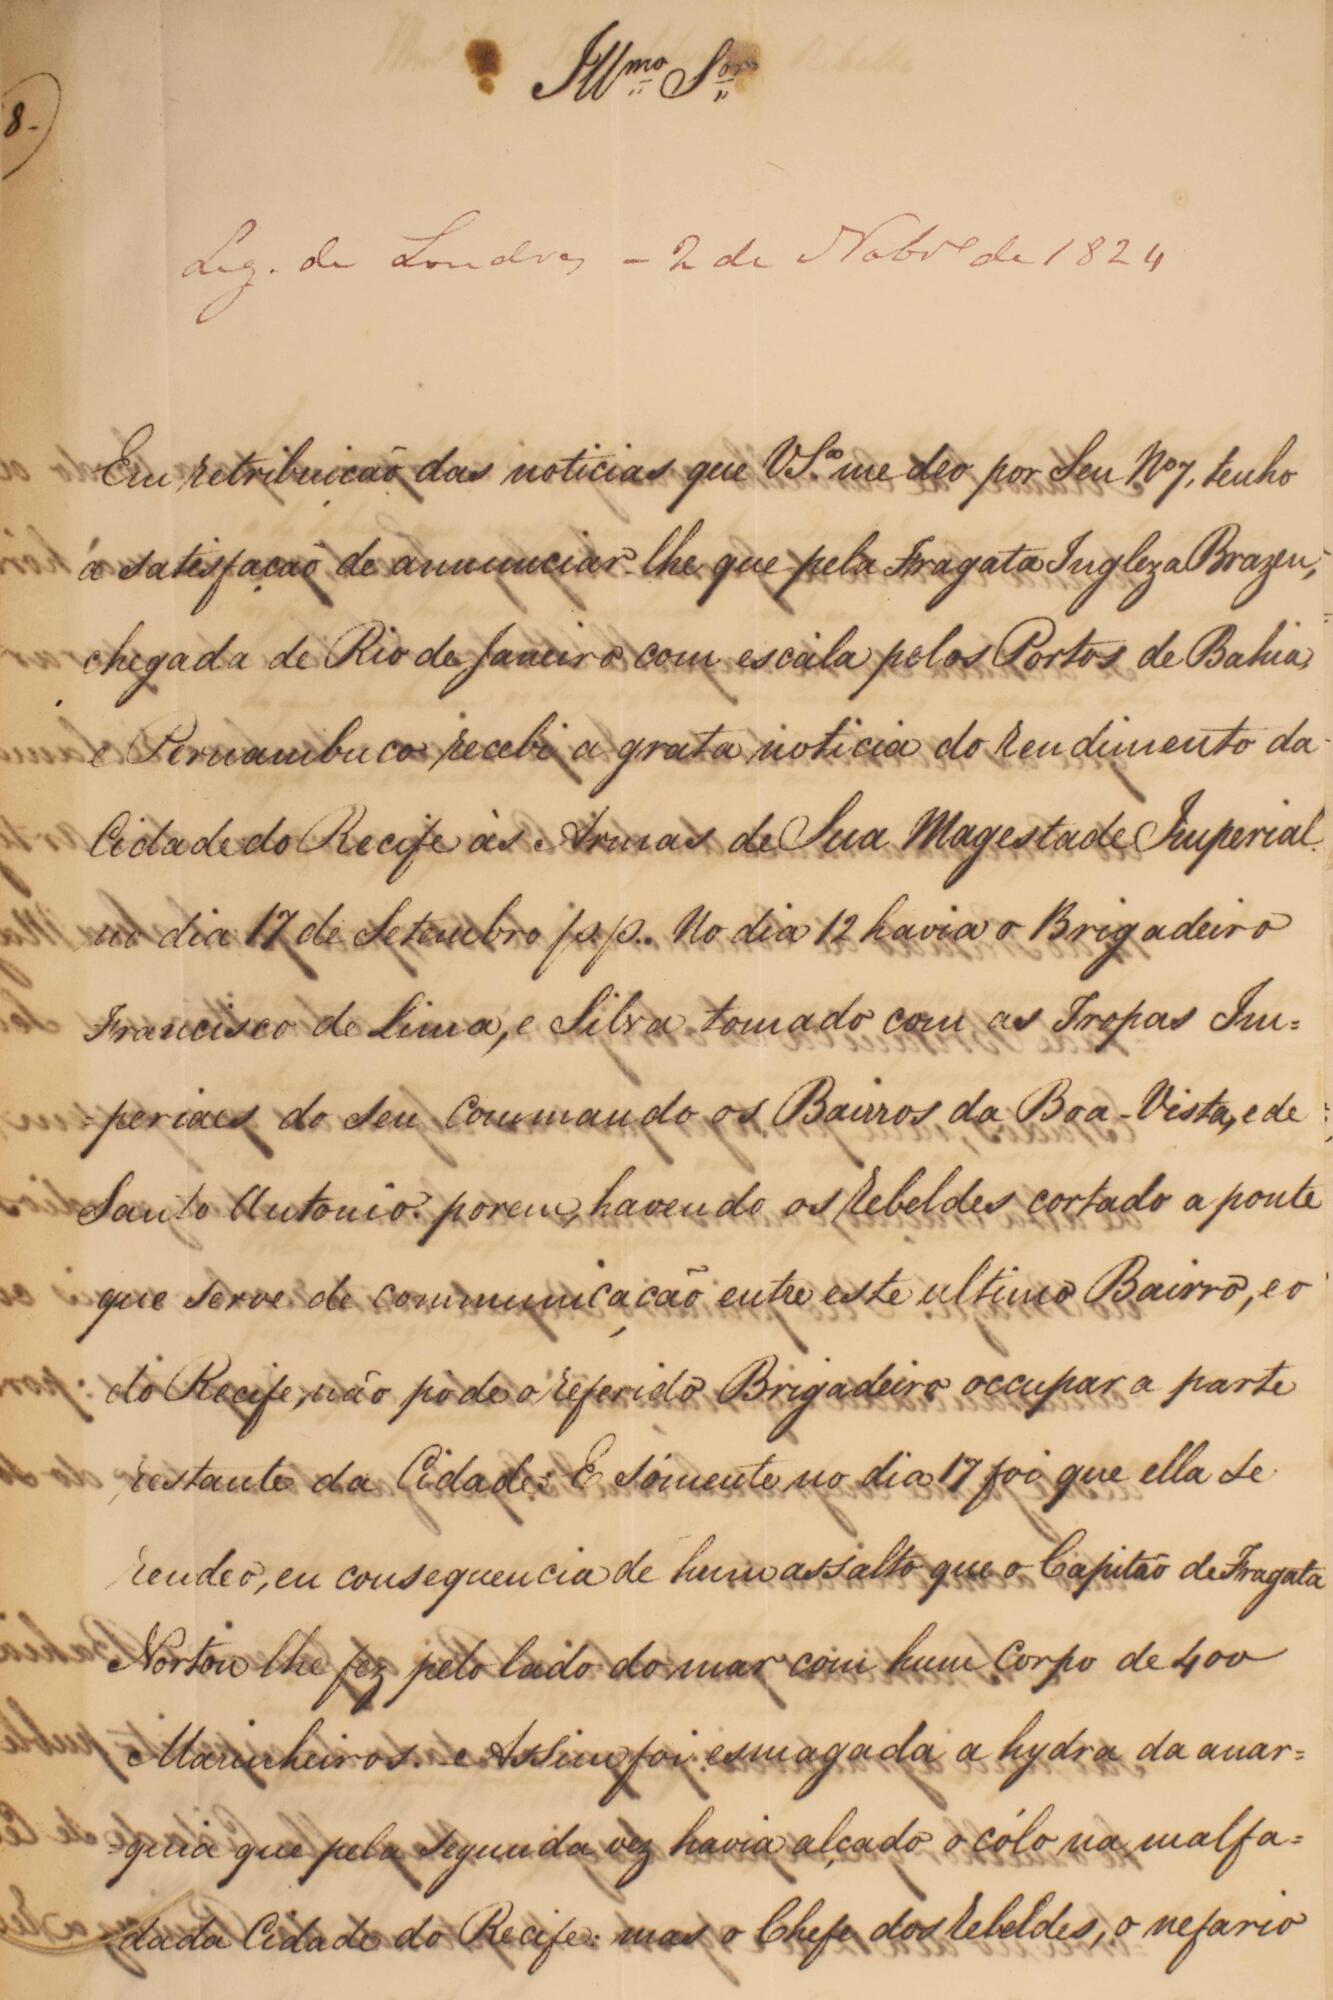 Illmo Sor
8.
Leg. de Londres - 2 de Nobro de 1824
Em retribuicão das noticias que V.Sa. me deo por Seu No 7, tenho
a satisfação de annunciar-lhe que pela Fragata Ingleza Brazen,
chegada de Rio de Janeiro com escála pelos Portos de Bahia,
e Pernambuco recebi a grata noticia do rendimento da
Cidade do Recife às Armas de Sua Magestade Imperial
no dia 17 de Setembro p.p.. No dia 12 havia o Brigadeiro
Francisco de Lima, e Silva tomado com as Tropas Im=
=periaes do seu Commando os Bairros da Boa-Vista, e de
Santo Antonio: porem, havendo os rebeldes cortado a ponte
que serve de communicação entre este ultimo Bairro, e o
do Recife, não pôde o referido Brigadeiro occupar a parte
restante da Cidade: E sómente no dia 17 foi que ella se
rendeo, em consequencia de hum assalto que o Capitão de Fragata
Norton lhe fez pelo lado do mar com hum Corpo de 400
Marinheiros. e Assim foi esmagada a hydra da anar=
=quia que pela segunda vez havia alçado o cólo na malfa=
dada Cidade do Recife: mas o Chefe dos rebeldes, o nefario